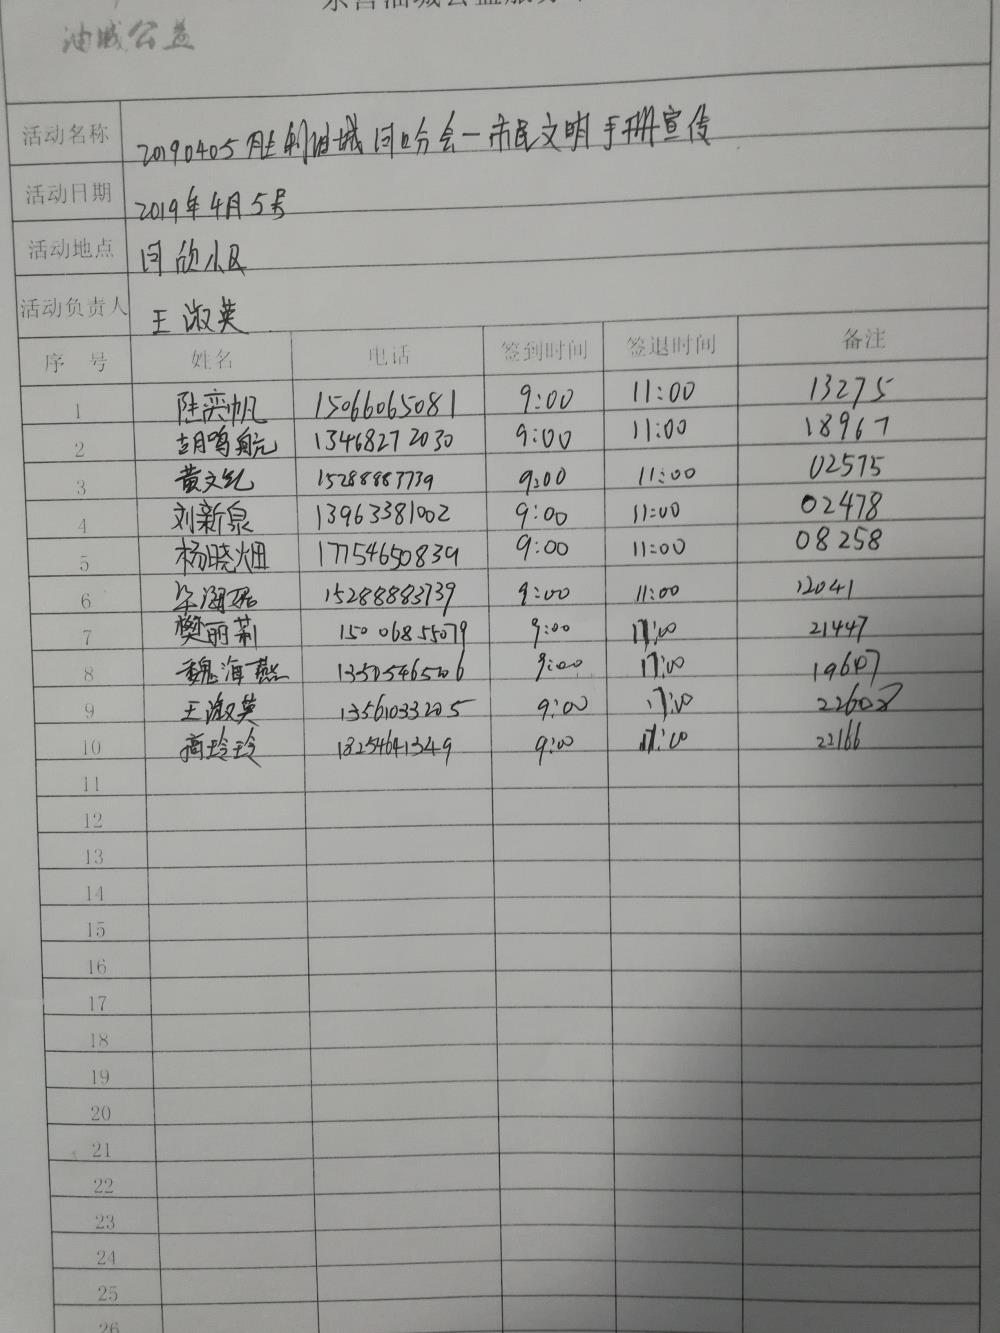 油城公益
活动名称 20190405胜利油城河口分会一市民文明手册宣传
活动日期 2019年4月5号
活动地点 河欣小区
活动负责人 王淑英
序 号 姓名 电话 签到时间 签退时间 备注
1 陆奕帆 15066065081 9:00 11:00 13275
2 胡鸣航 13468272030 9:00 11:00 18967
3 黄文纪 15288883739 9:00 11:00 02575
4 刘新泉 13963381002 9:00 11:00 02478
5 杨晓畑 17754650839 9:00 11:00 08258
6 15288883739 9:00 11:00 12041
7 樊丽莉 15006855079 9:00 11:00 21447
8 魏海燕 13505465206 9:00 11:00 19607
9 王淑英 13561033205 9:00 11:00 22608
10 高玲玲 18254641349 9:00 11:00 22166
11
12
13
14
15
16
17
18
19
20
21
22
23
24
25
26